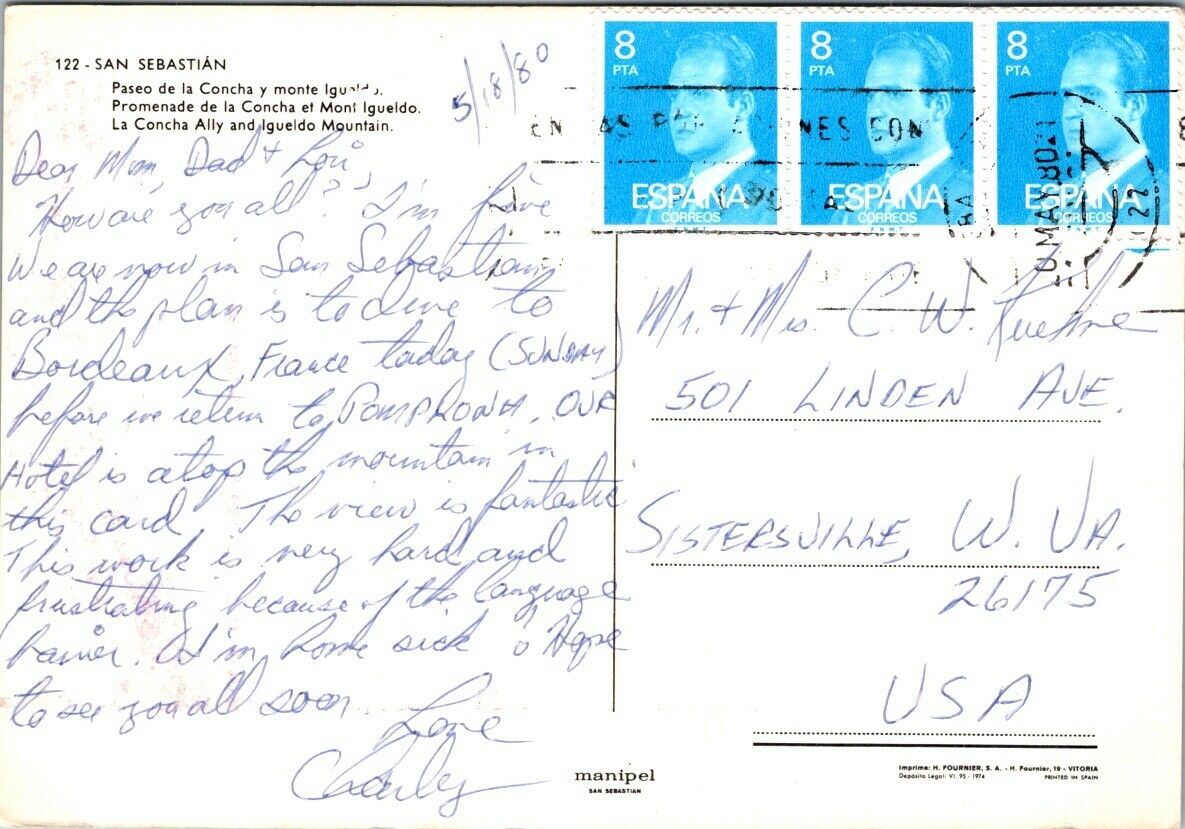 122 - SAN SEBASTIÁN
Paseo de la Concha y monte Igueldo.
Promenade de la Concha et Mont Igueldo.
La Concha Ally and Igueldo Mountain.
5/18/80
Dear Mom, Dad + Lori,
How are you all? I'm fine
We are now in San Sebastian
and the plan is to drive to
Bordeaux, France today (SUNDAY)
before we return to PAMPLONA. OUR
Hotel is atop the mountain in
this card. The view is fantastic.
This work is very hard and
frustrating because of the language
barrier. I'm home sick Hope
to see you all soon.
Love
Charley
8 PTA ESPAÑA CORREOS F.N.M.T.
8 PTA ESPAÑA CORREOS F.N.M.T.
8 PTA ESPAÑA CORREOS F.N.M.T.
MAY 80
22
Mr. + Mrs. C. W. Kuehne
501 LINDEN AVE.
SISTERSVILLE, W. VA.
26175
USA
manipel
SAN SEBASTIAN
Imprime: H. FOURNIER, S. A. - H. Fournier, 19 - VITORIA
Depósito Legal: VI. 95 - 1974 PRINTED IN SPAIN